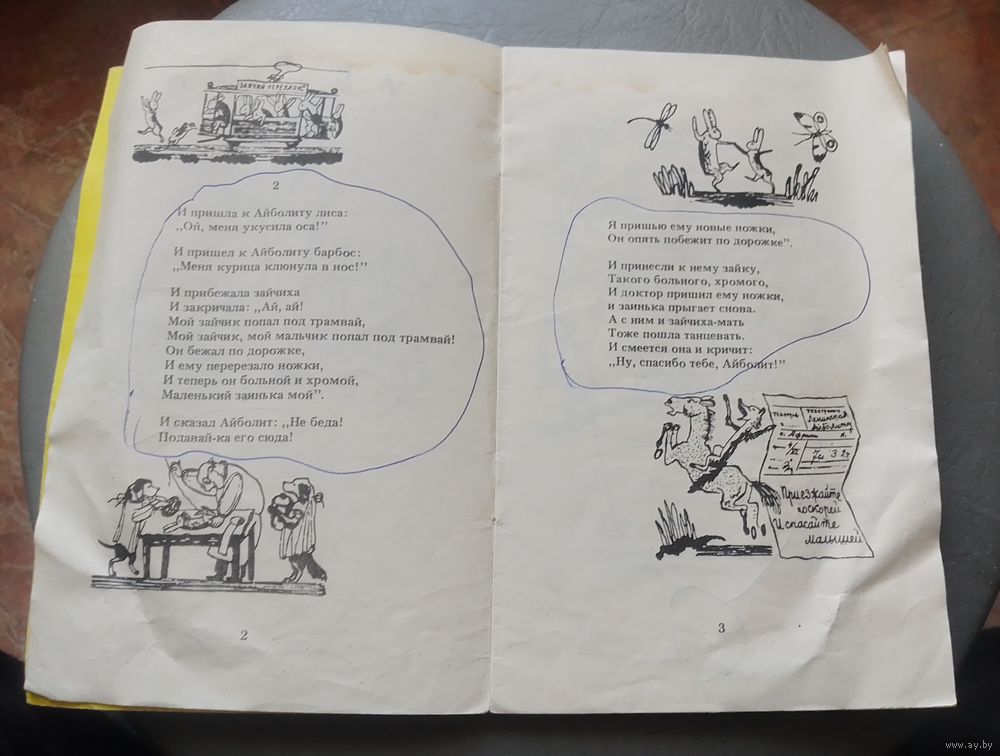 ЗАЯЧИЙ ПЕРЕУЛОК
2
И пришла к Айболиту лиса:
„Ой, меня укусила оса!”
И пришел к Айболиту барбос:
„Меня курица клюнула в нос!”
И прибежала зайчиха
И закричала: „Ай, ай!
Мой зайчик попал под трамвай,
Мой зайчик, мой мальчик попал под трамвай!
Он бежал по дорожке,
И ему перерезало ножки,
И теперь он больной и хромой,
Маленький заинька мой”.
И сказал Айболит: „Не беда!
Подавай-ка его сюда!
2
Я пришью ему новые ножки,
Он опять побежит по дорожке”.
И принесли к нему зайку,
Такого больного, хромого,
И доктор пришил ему ножки,
и заинька прыгает снова.
А с ним и зайчиха-мать
Тоже пошла танцевать.
И смеется она и кричит:
„Ну, спасибо тебе, Айболит!”
Приезжайте
поскорей
И спасайте
малышей
3
www.ay.by